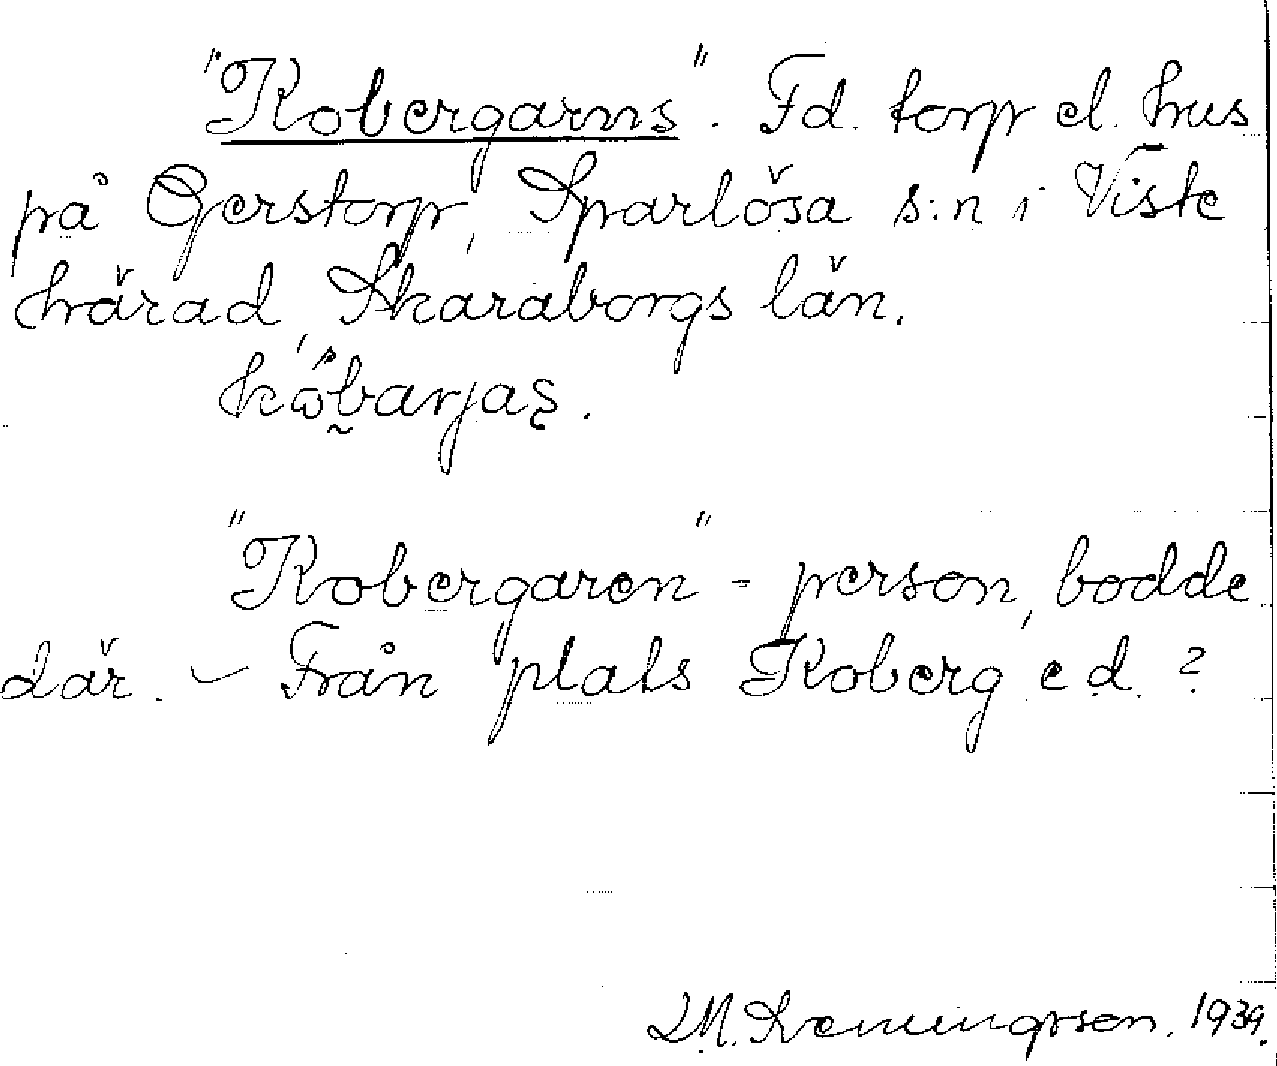 "Kobergarns". Fd. torp el. hus
på Gerstorp, Sparlösa s:n i Viste
härad, Skaraborgs län.
"Kobergaren" - person, bodde
där. – Från plats Koberg e.d.?
1939.